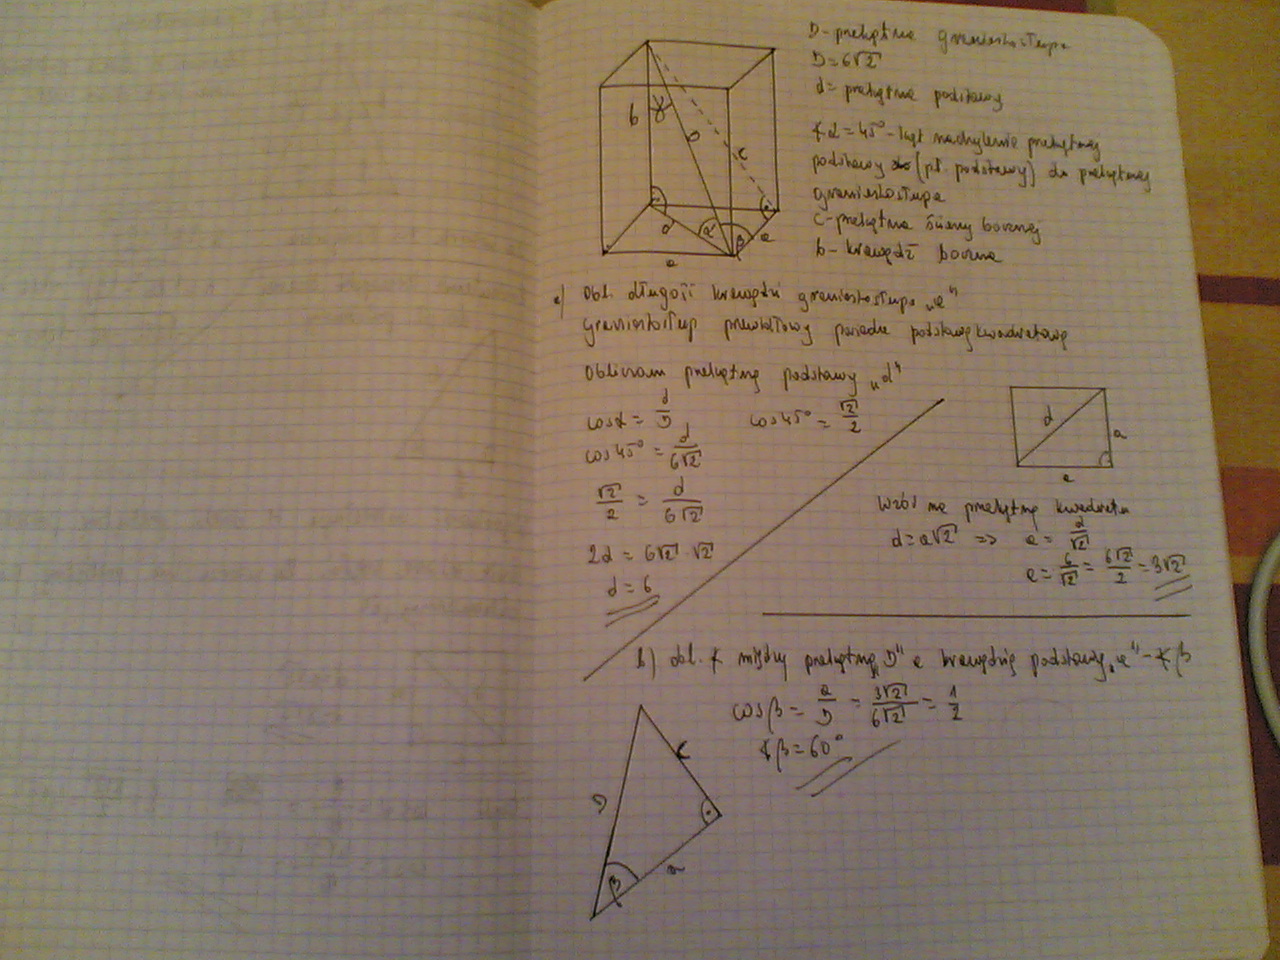 D - przekątna graniastosłupa
D = 6√2
d = przekątna podstawy
∢α = 45° - kąt nachylenia przekątnej
podstawy do (pł. podstawy) do przekątnej
graniastosłupa
c - przekątna ściany bocznej
b - krawędź boczna
b
γ
D
c
d
α
β
a
a
a) Obl. długość krawędzi graniastosłupa „a"
graniastosłup prawidłowy posiada podstawę kwadratową
Obliczam przekątną podstawy „d"
cosα = d/D
cos45° = √2/2
cos45° = d/6√2
√2/2 = d/6√2
2d = 6√2 · √2
d = 6
d
a
a
Wzór na przekątną kwadratu
d = a√2 => a = d/√2
a = 6/√2 = 6√2/2 = 3√2
b) obl. ∢ między przekątną „D" a krawędzią podstawy „a" - ∢β
cosβ = a/D = 3√2/6√2 = 1/2
∢β = 60°
D
c
β
a